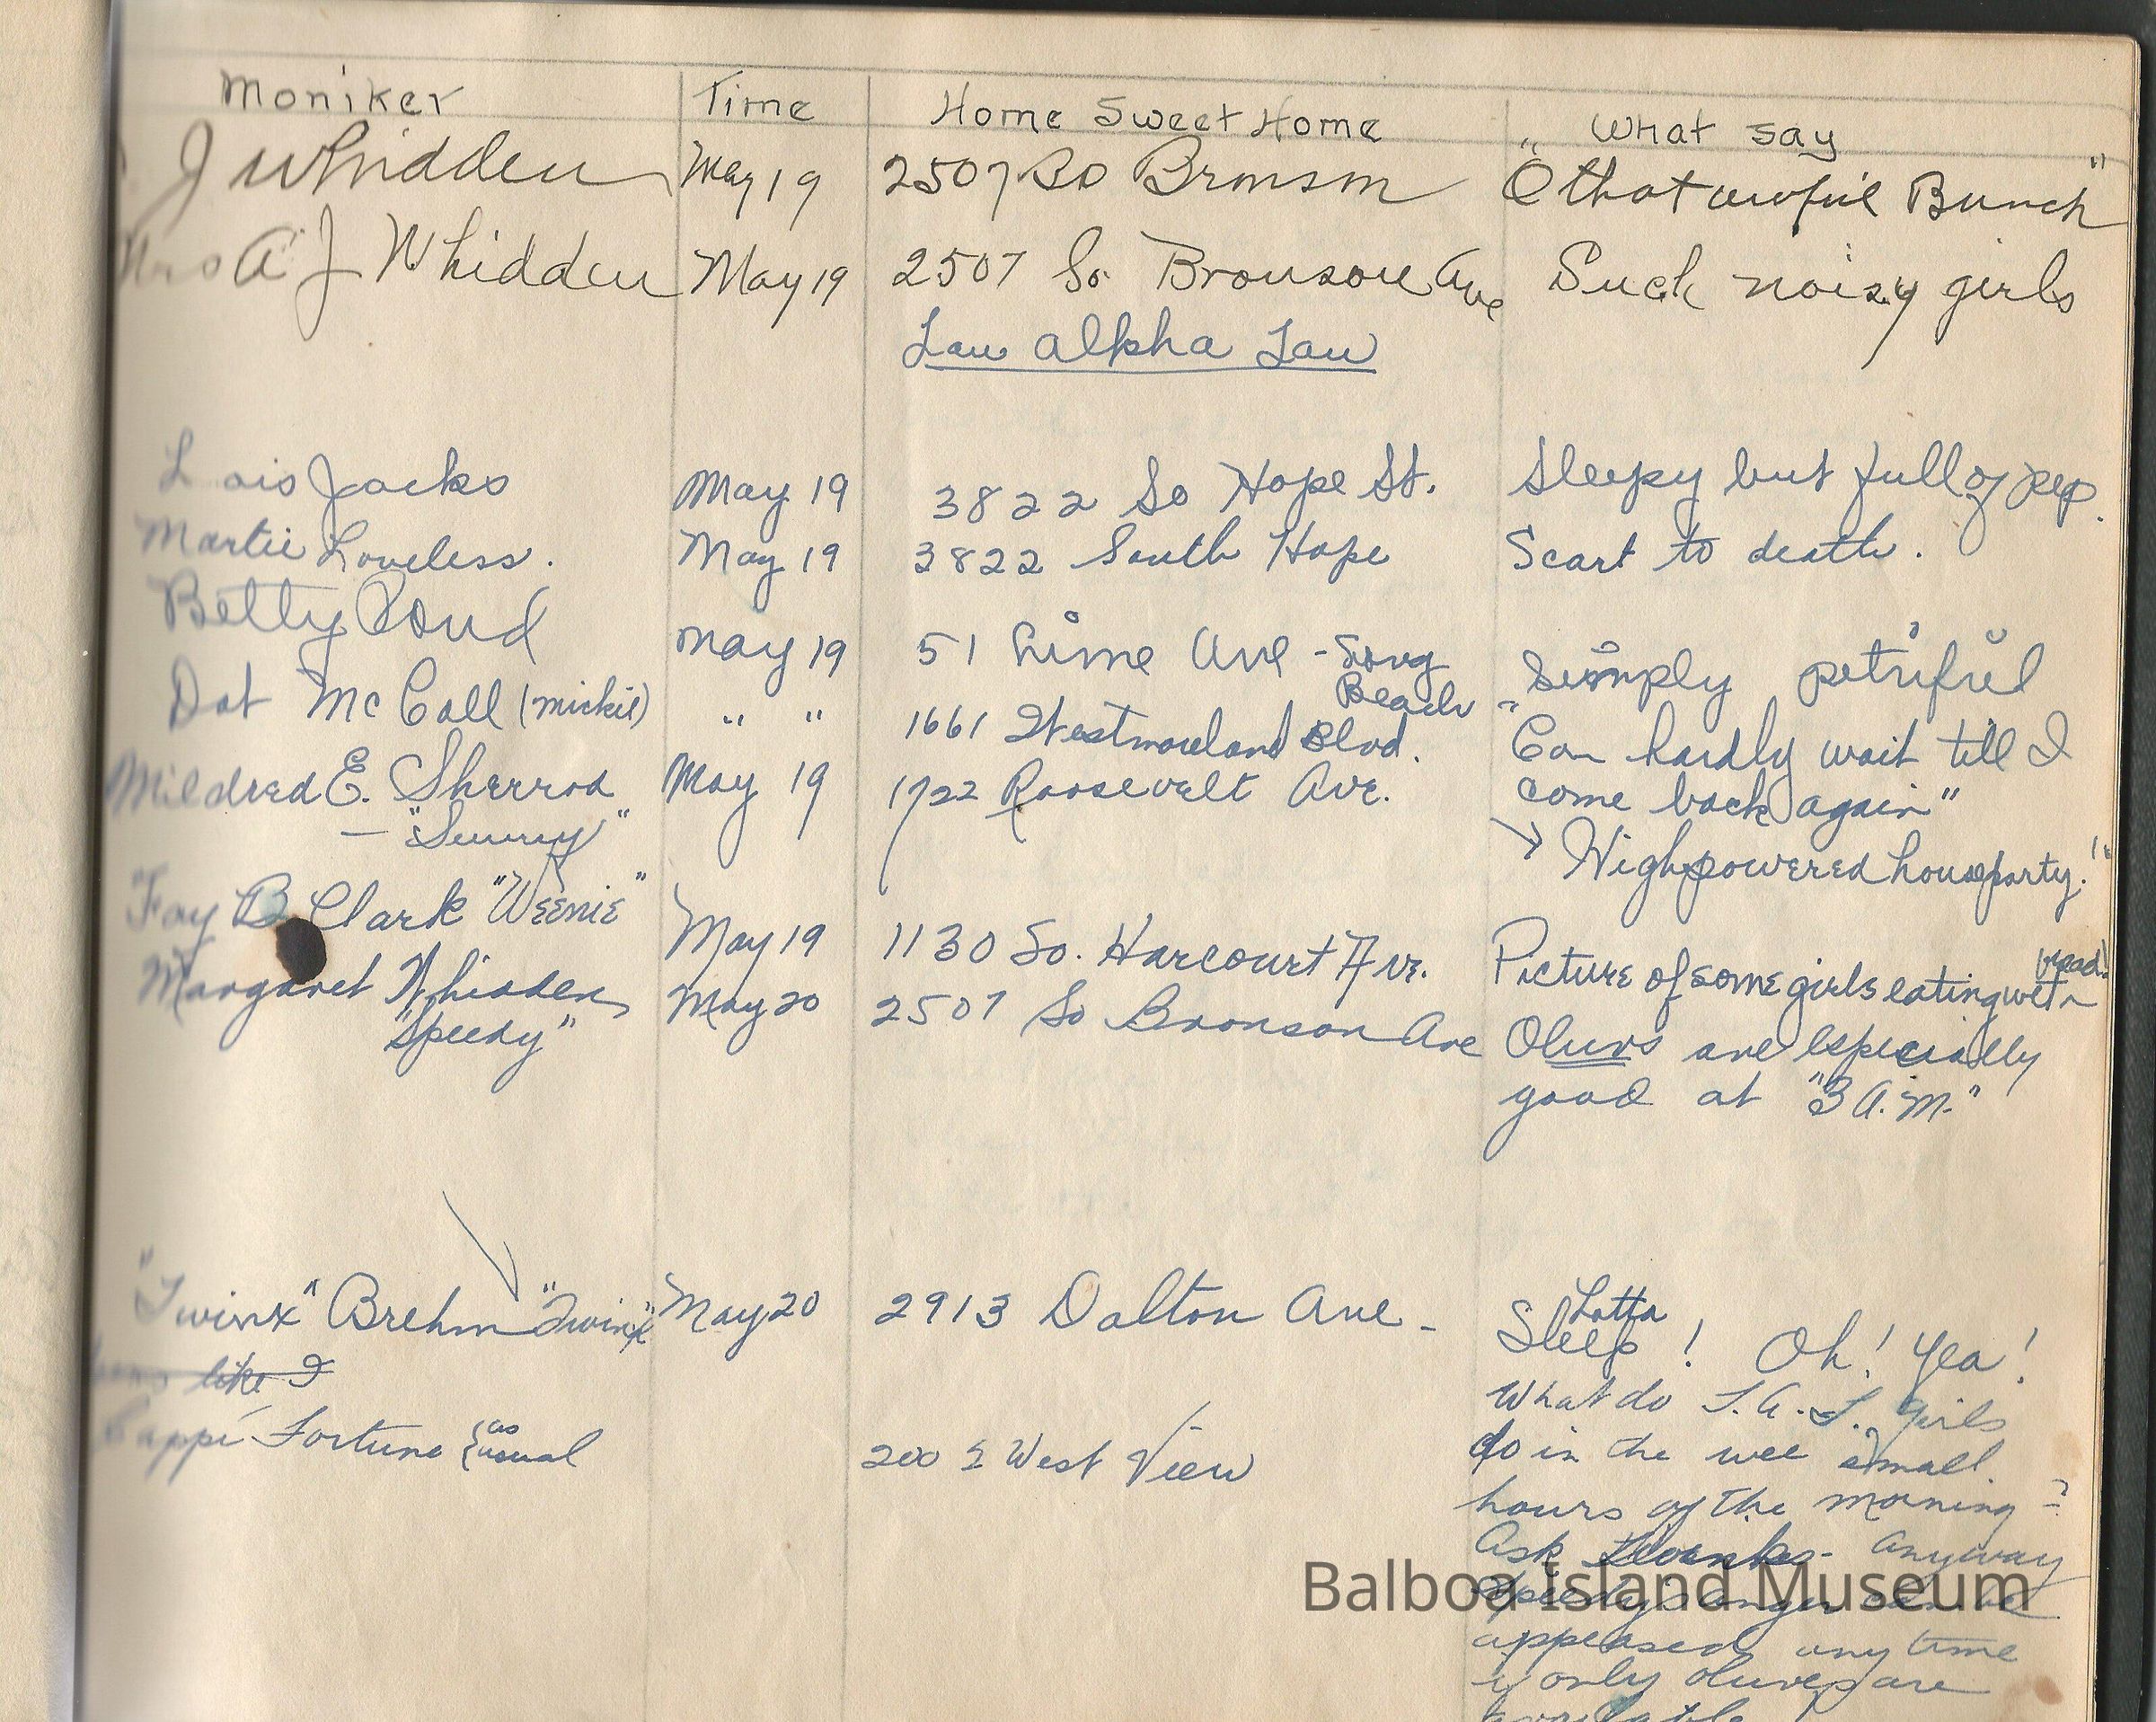 Moniker Time Home Sweet Home What say
J Whidden May 19 2507 So Bronson "O that awful Bunch"
Mrs A J Whidden May 19 2507 So Bronson Ave Such noisy girls
Tau Alpha Tau
Lois Jacks May 19 3822 So Hope St. Sleepy but full of pep.
Martie Loveless. May 19 3822 South Hope Scart to death.
Betty Pond May 19 51 Lime Ave - Long Beach Simply petrified
Dot McCall (mickie) " " 1661 Westmoreland Blvd. "Can hardly wait till I
come back again"
Mildred E. Sherrod May 19 1722 Roosevelt Ave.
— "Sunny" → High powered houseparty!"
Fay B Clark "Weenie" May 19 1130 So. Harcourt Ave. Picture of some girls eating with
Margaret Whidden May 20 2507 So Bronson Ave Olives are especially
"Speedy" good at "3 A.M."
"Twinx" Brehm "Twinx" May 20 2913 Dalton Ave - Lotta
Sleep! Oh! Yea!
like I
What do T.A.T. girls
Fortune {as usual 200 S West View do in the wee small
hours of the morning?
Ask Anyway
Speedy's anger can be
appeased any time
if only olives are
available
Balboa Island Museum